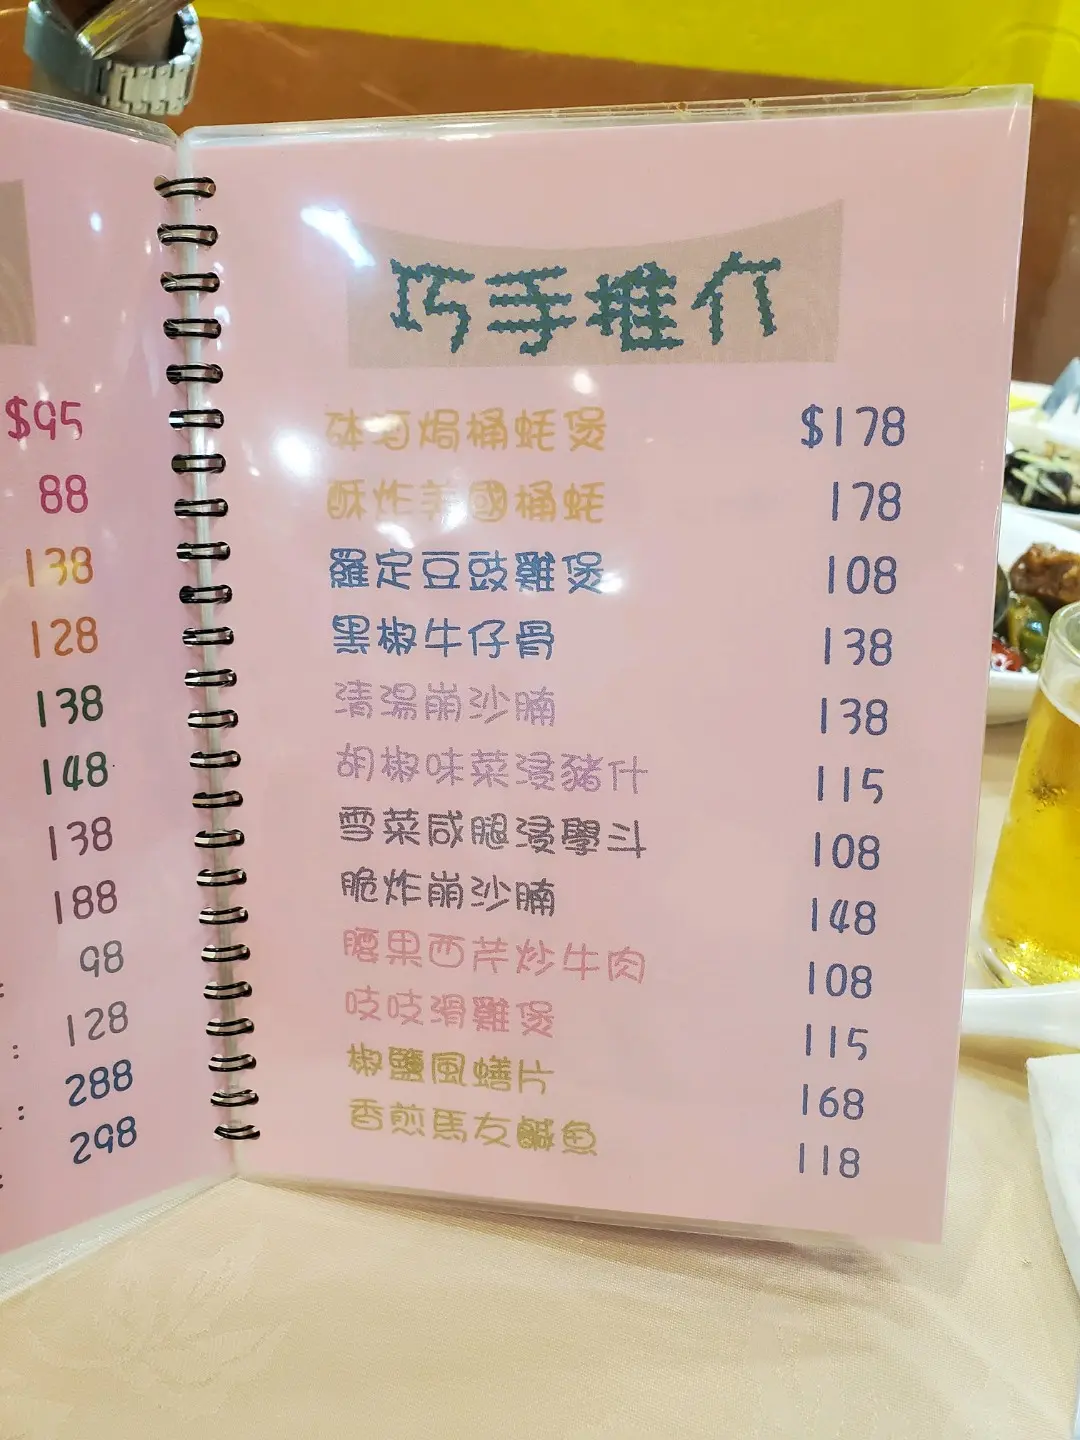 $95
88
138
128
138
148
138
188
98
128
288
298
巧手推介
砵酒焗桶蚝煲 $178
酥炸美國桶蚝 178
羅定豆豉雞煲 108
黑椒牛仔骨 138
清湯崩沙腩 138
胡椒味菜浸豬什 115
雪菜咸腿浸學斗 108
脆炸崩沙腩 148
腰果西芹炒牛肉 108
吱吱滑雞煲 115
椒鹽風蟮片 168
香煎馬友鹹魚 118